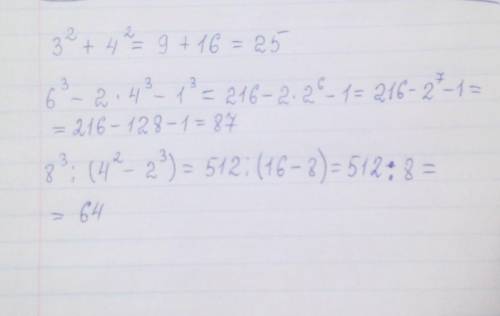 3² + 4² = 9 + 16 = 25
6³ - 2 · 4³ - 1³ = 216 - 2 · 2⁶ - 1 = 216 - 2⁷ - 1 =
= 216 - 128 - 1 = 87
8³ : (4² - 2³) = 512 : (16 - 8) = 512 : 8 =
= 64